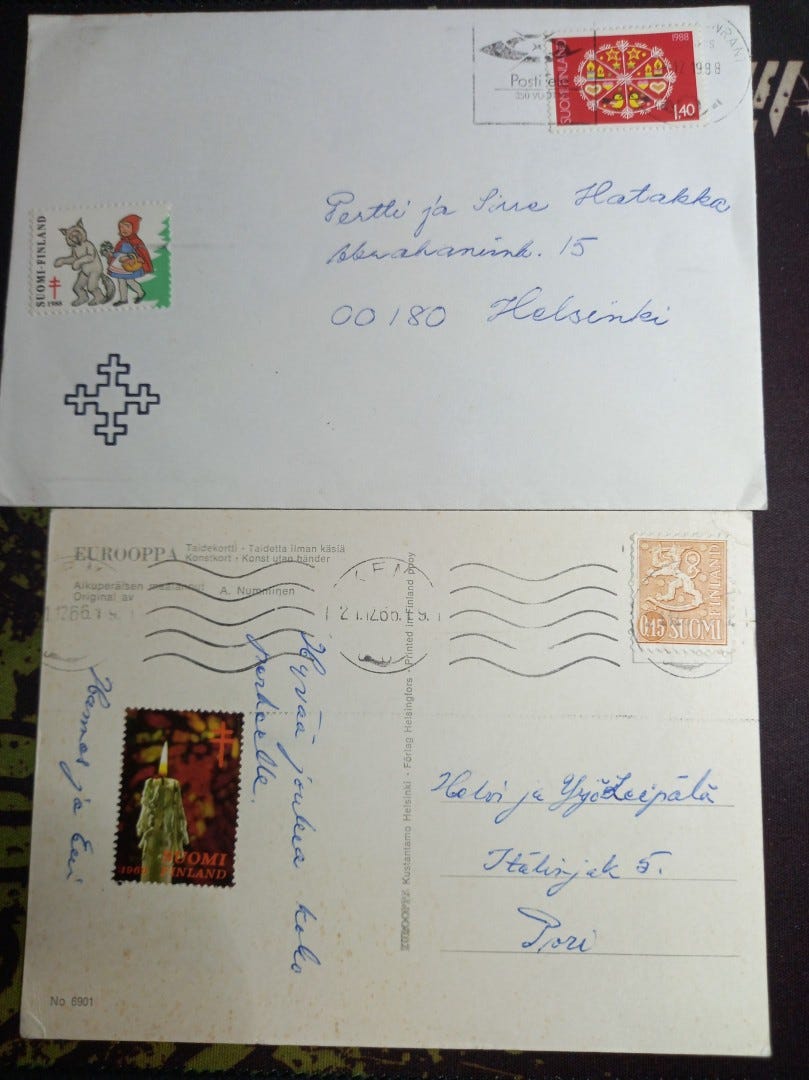 Posti
350 VUOTTA
1988
SUOMI FINLAND
1,40
SUOMI-FINLAND
1988
Pertti ja Sirre Hatakka
Abrahamink. 15
00180 Helsinki
EUROOPPA
Taidekortti - Taidetta ilman käsiä
Konstkort - Konst utan händer
Alkuperäisen maalannut
Original av
A. Numminen
KEMI
21.12.66.19.
0,15 SUOMI
FINLAND
Hyvää joulua koko
perheelle.
Hannes ja Eeri
SUOMI
FINLAND
EUROOPPA Kustantamo Helsinki - Förlag Helsingfors - Printed in Finland
Helvi ja Yrjö Leipälä
Itälinjak 5.
Pori
No 6901